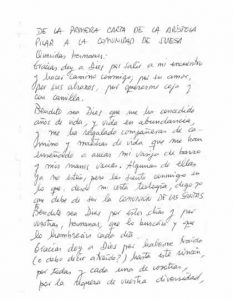 DE LA PRIMERA CARTA DE LA APÓSTOLA
PILAR A LA COMUNIDAD DE SUESA
Queridas Hermanas:
Gracias doy a Dios por salir a mi encuentro
y hacer camino conmigo, por su amor,
por sus abrazos, por quererme coja y
con camilla.
Bendito sea Dios que me ha concedido
años de vida, y vida en abundancia,
y me ha regalado compañeras de ca-
mino y madres de vida que me han
enseñado a amar mi vasija de barro
y sus manos. Algunas de ellas
ya no están, pero las siento conmigo en
lo que, desde mi corta teología, digo yo
que debe de ser la COMUNIÓN DE LOS SANTOS.
Bendito sea Dios por este día y por
vosotras, hermanas, que lo buscáis y que
lo alumbráis cada día.
Gracias doy a Dios por haberme traído
(o debo decir arreado?) hasta este rincón,
por todas y cada una de vosotras,
por la riqueza de vuestra diversidad,